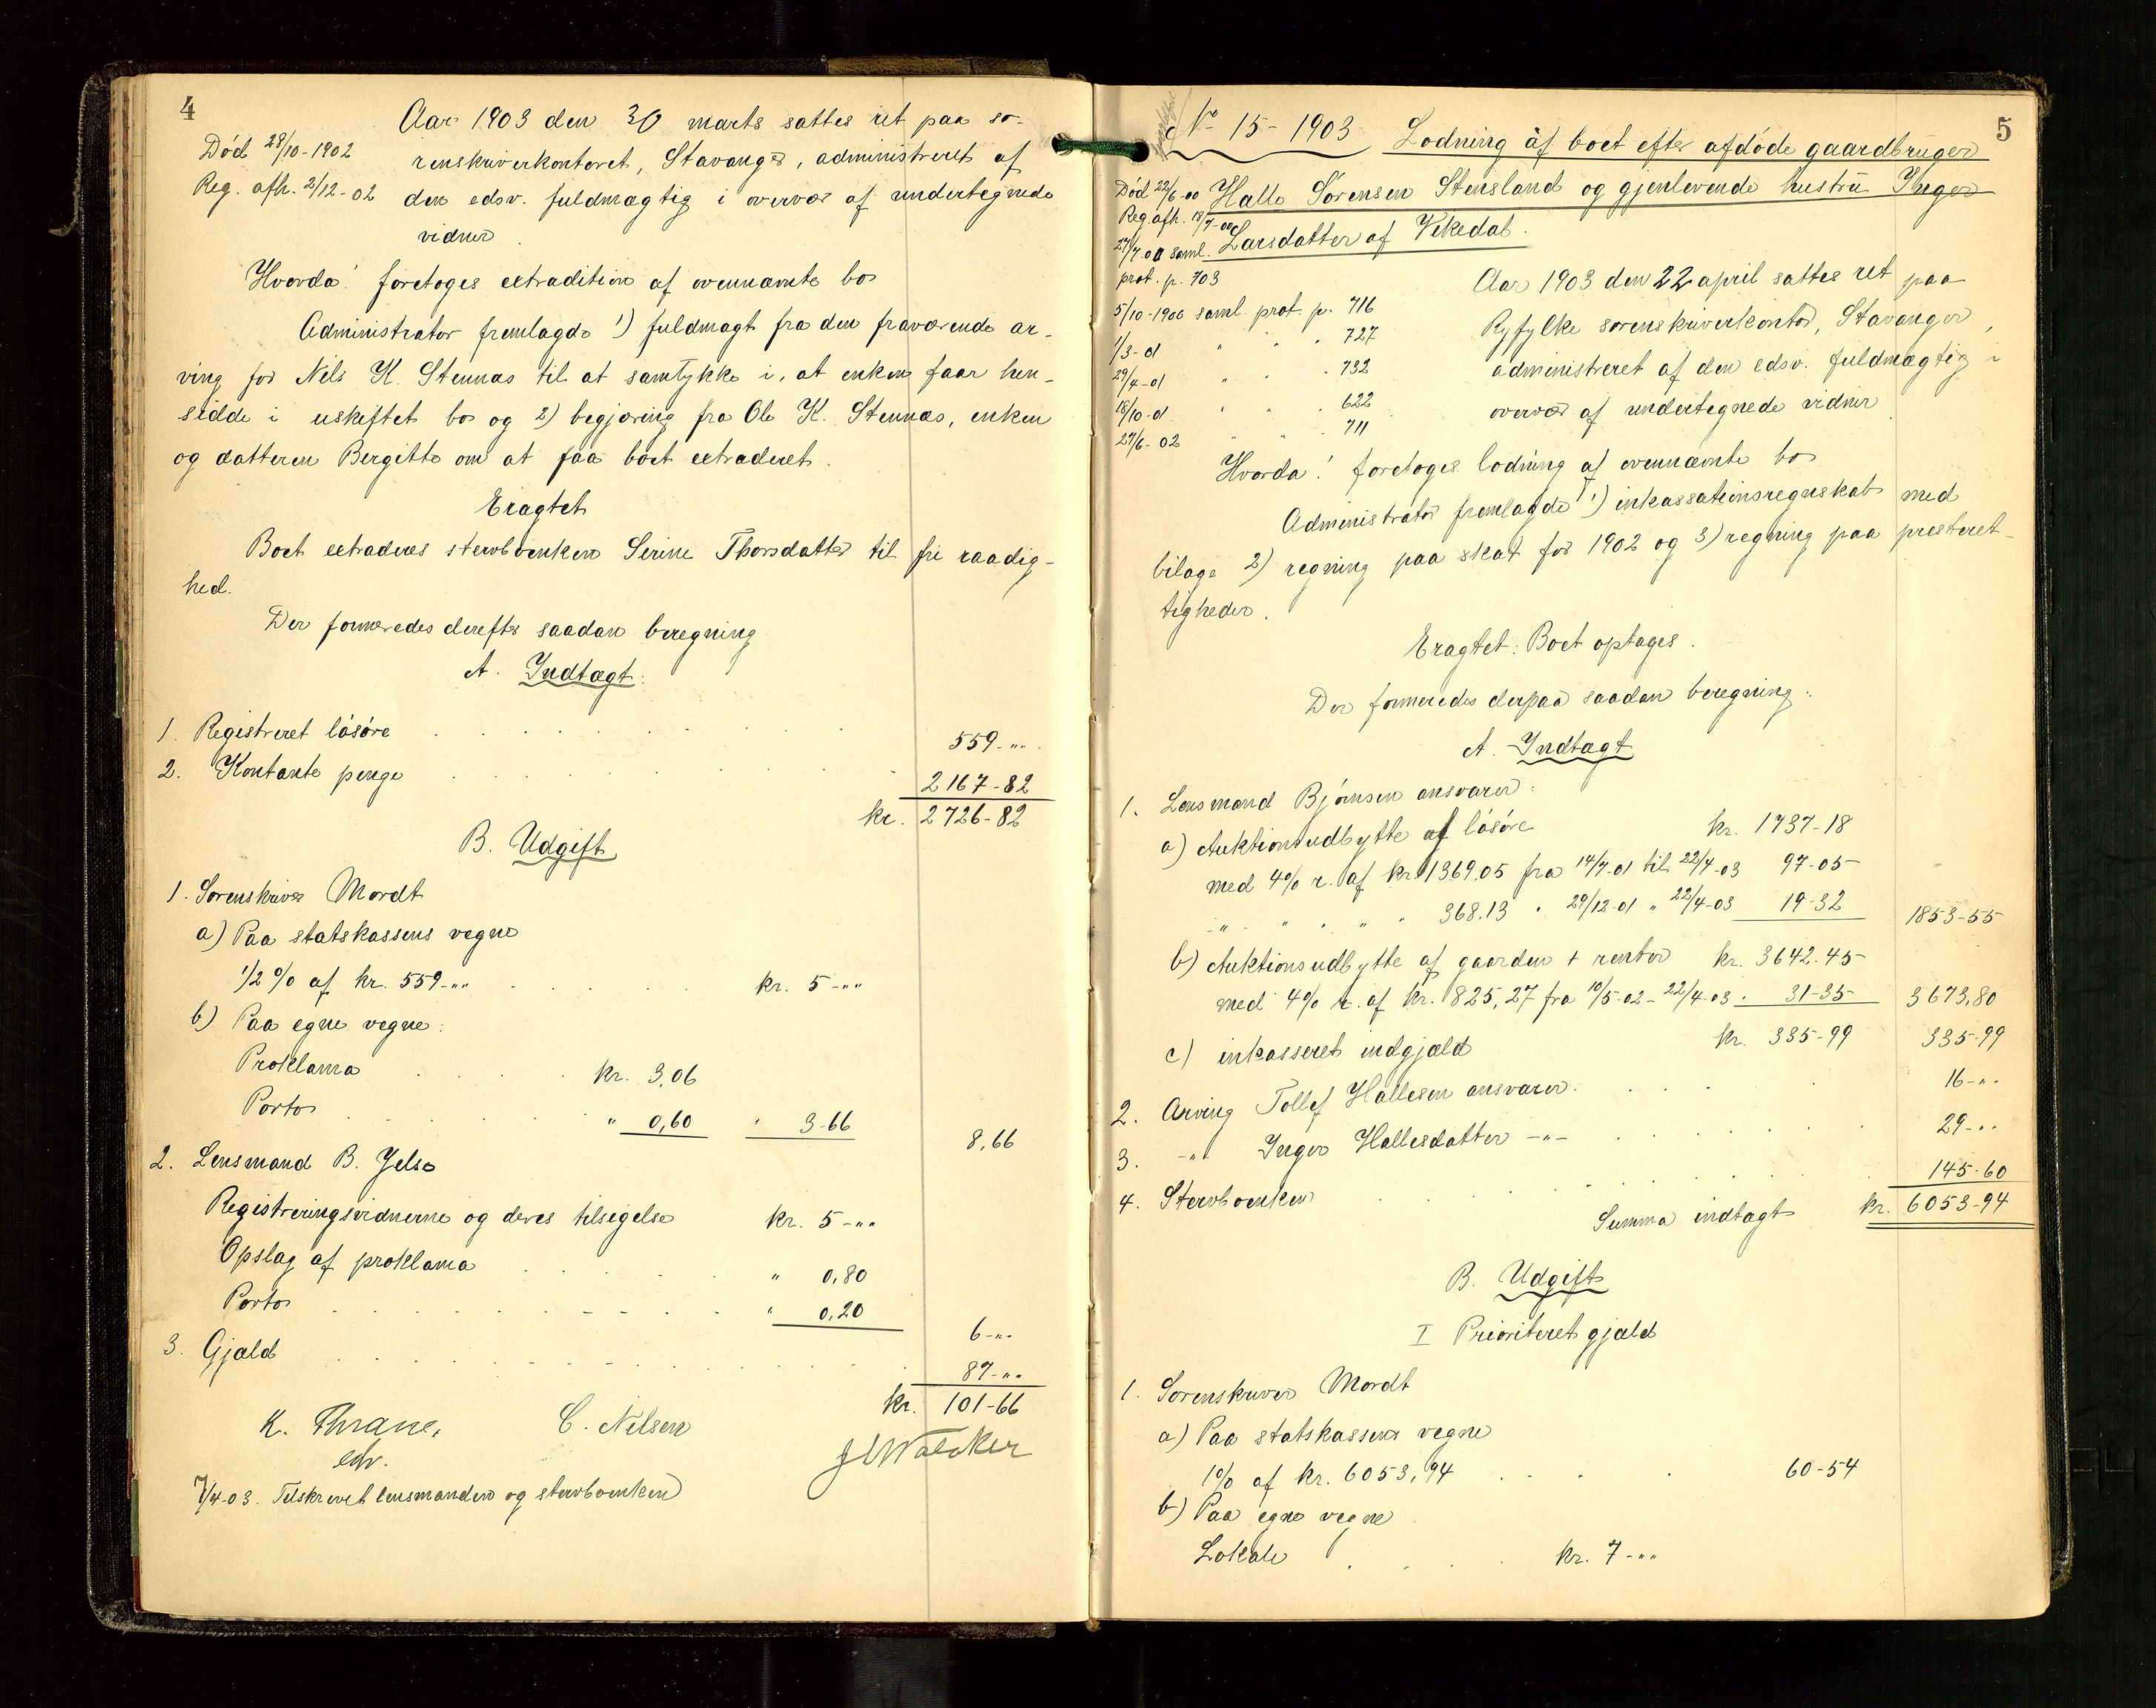 4
Aar 1903 den 30 marts sattes ret paa so-
Död 28/10-1902
renskriverkontoret, Stavanger, administreret af
Reg. afh. 2/12-02
den edsv. fuldmægtig i overvær af undertegnede
vidner.
Hvorda! foretoges extradition af ovennævnte bo
Administrator fremlagde 1) fuldmagt fra den fraværende ar-
ving for Nels K. Stennæs til at samtykke i, at enken faar hen-
sidde i uskiftet bo og 2) begjæring fra Ole K. Stennæs, enken
og datteren Bergitte om at faa boet extraderet.
Eragtet
Boet extraderes stervboenken Serine Thorsdatter til fri raadig-
hed.
Der formeredes derefter saadan beregning
A. Indtægt:
1. Registreret lösöre . . . . 559-"
2. Kontante penge . . . . 2167-82
kr. 2726-82
B. Udgift
1. Sorenskriver Mordt
a) Paa statskassens vegne
1/2 % af kr. 559-" . . . . kr. 5-"
b) Paa egne vegne:
Proklama . . . . kr. 3,06
Porto . . . . " 0,60 " 3-66 8,66
2. Lensmand B. Jelsa
Registreringsvidnerne og deres tilsigelse kr. 5-"
Opslag af proklama . . . . " 0,80
Porto . . . . " 0,20 6-"
3. Gjæld . . . . 87-"
kr. 101-66
K. Thrane, C. Nilsen
edv. J L Walcker
7/4-03. Tilskrevet lensmanden og stervboenken
5
No 15-1903 Lodning af boet efter afdöde gaardbruger
Död 22/6-00 Halle Sörensen Stensland og gjenlevende hustru Inger
Reg. afh. 18/7-00
Larsdatter af Vikedal.
27/7-00 saml.
prot. p. 703
Aar 1903 den 22 april sattes ret paa
5/10-1900 saml. prot. p. 716
Ryfylke sorenskriverkontor, Stavanger,
1/3-01 " " " 727
administreret af den edsv. fuldmægtig i
29/4-01 " " " 732
overvær af undertegnede vidner
18/10-01 " " " 622
27/6-02 " " " 711
Hvorda! foretoges lodning af ovennævnte bo
Administrator fremlagde 1) inkassationsregnskab med
bilage 2) regning paa skat for 1902 og 3) regning paa presteret-
tigheder.
Eragtet: Boet optages.
Der formeredes derpaa saadan beregning:
A. Indtægt
1. Lensmand Björnsen ansvarer:
a) Auktionsudbytte af lösöre kr. 1737-18
med 4% r. af kr. 1369.05 fra 14/7-01 til 22/4-03 97-05
" " " " " 368.13 " 29/12-01 " 22/4-03 19-32 1853-55
b) Auktionsudbytte af gaarden + renter kr. 3642.45
med 4% r. af kr. 825,27 fra 10/5-02 - 22/4-03 . 31-35 3673,80
c) inkasseret indgjæld kr. 335-99 335-99
2. Arving Tollef Hallesen ansvarer . . . 16-"
3. -"- Inger Hallesdatter -"- . . . . 29-"
4. Stervboenken . . . . 145-60
Summa indtægt kr. 6053-94
B. Udgift
I Prioriteret gjæld
1. Sorenskriver Mordt
a) Paa statskassens vegne
1% af kr. 6053,94 . . . 60-54
b) Paa egne vegne
Lokale . . . . kr. 7-"